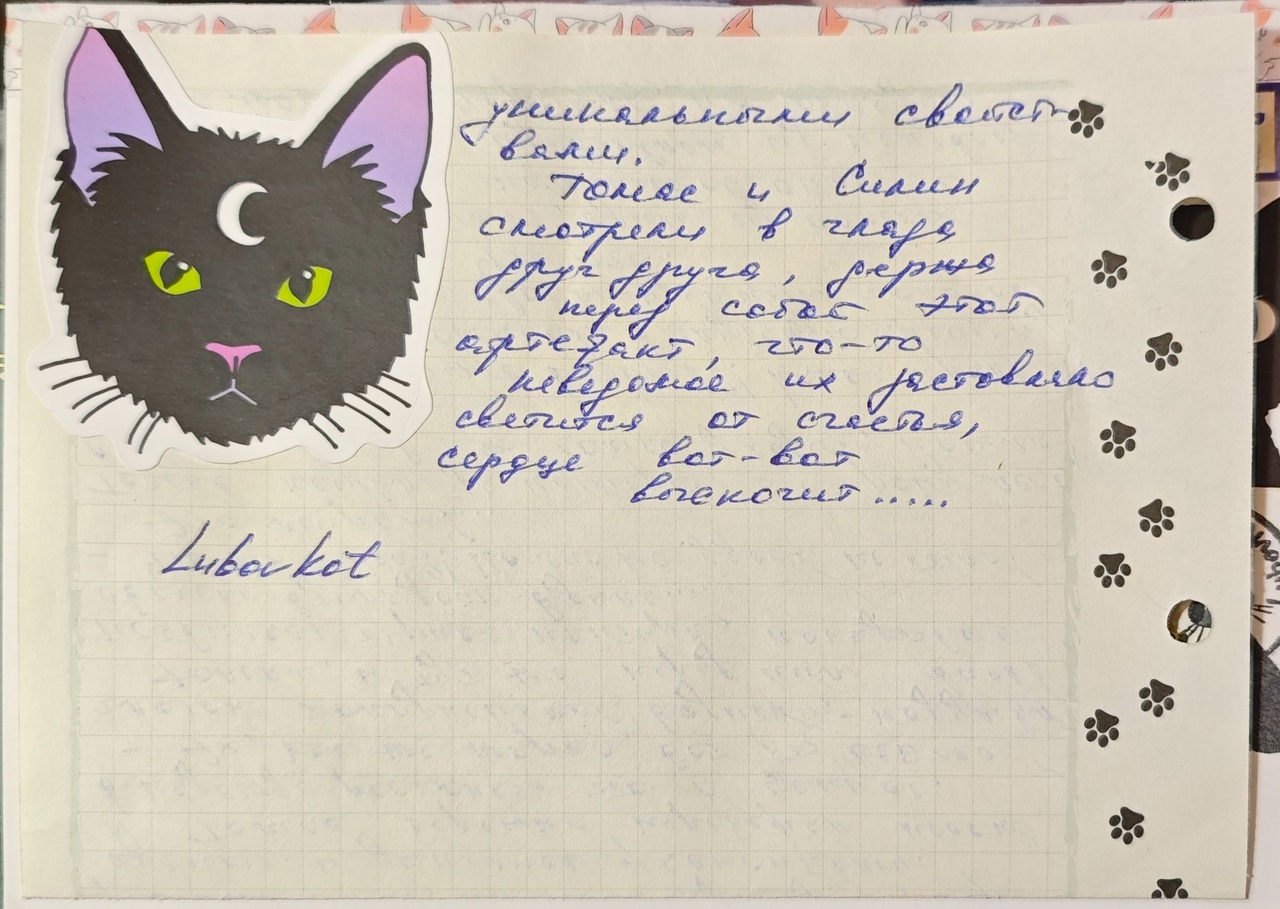 уникальными свойст-
вами.
Томас и Силин
смотрели в глаза
друг друга, держа
перед собой этот
артефакт, что-то
неведомое их заставляло
светится от счастья,
сердце вот-вот
выскочит.....
Lubovkot